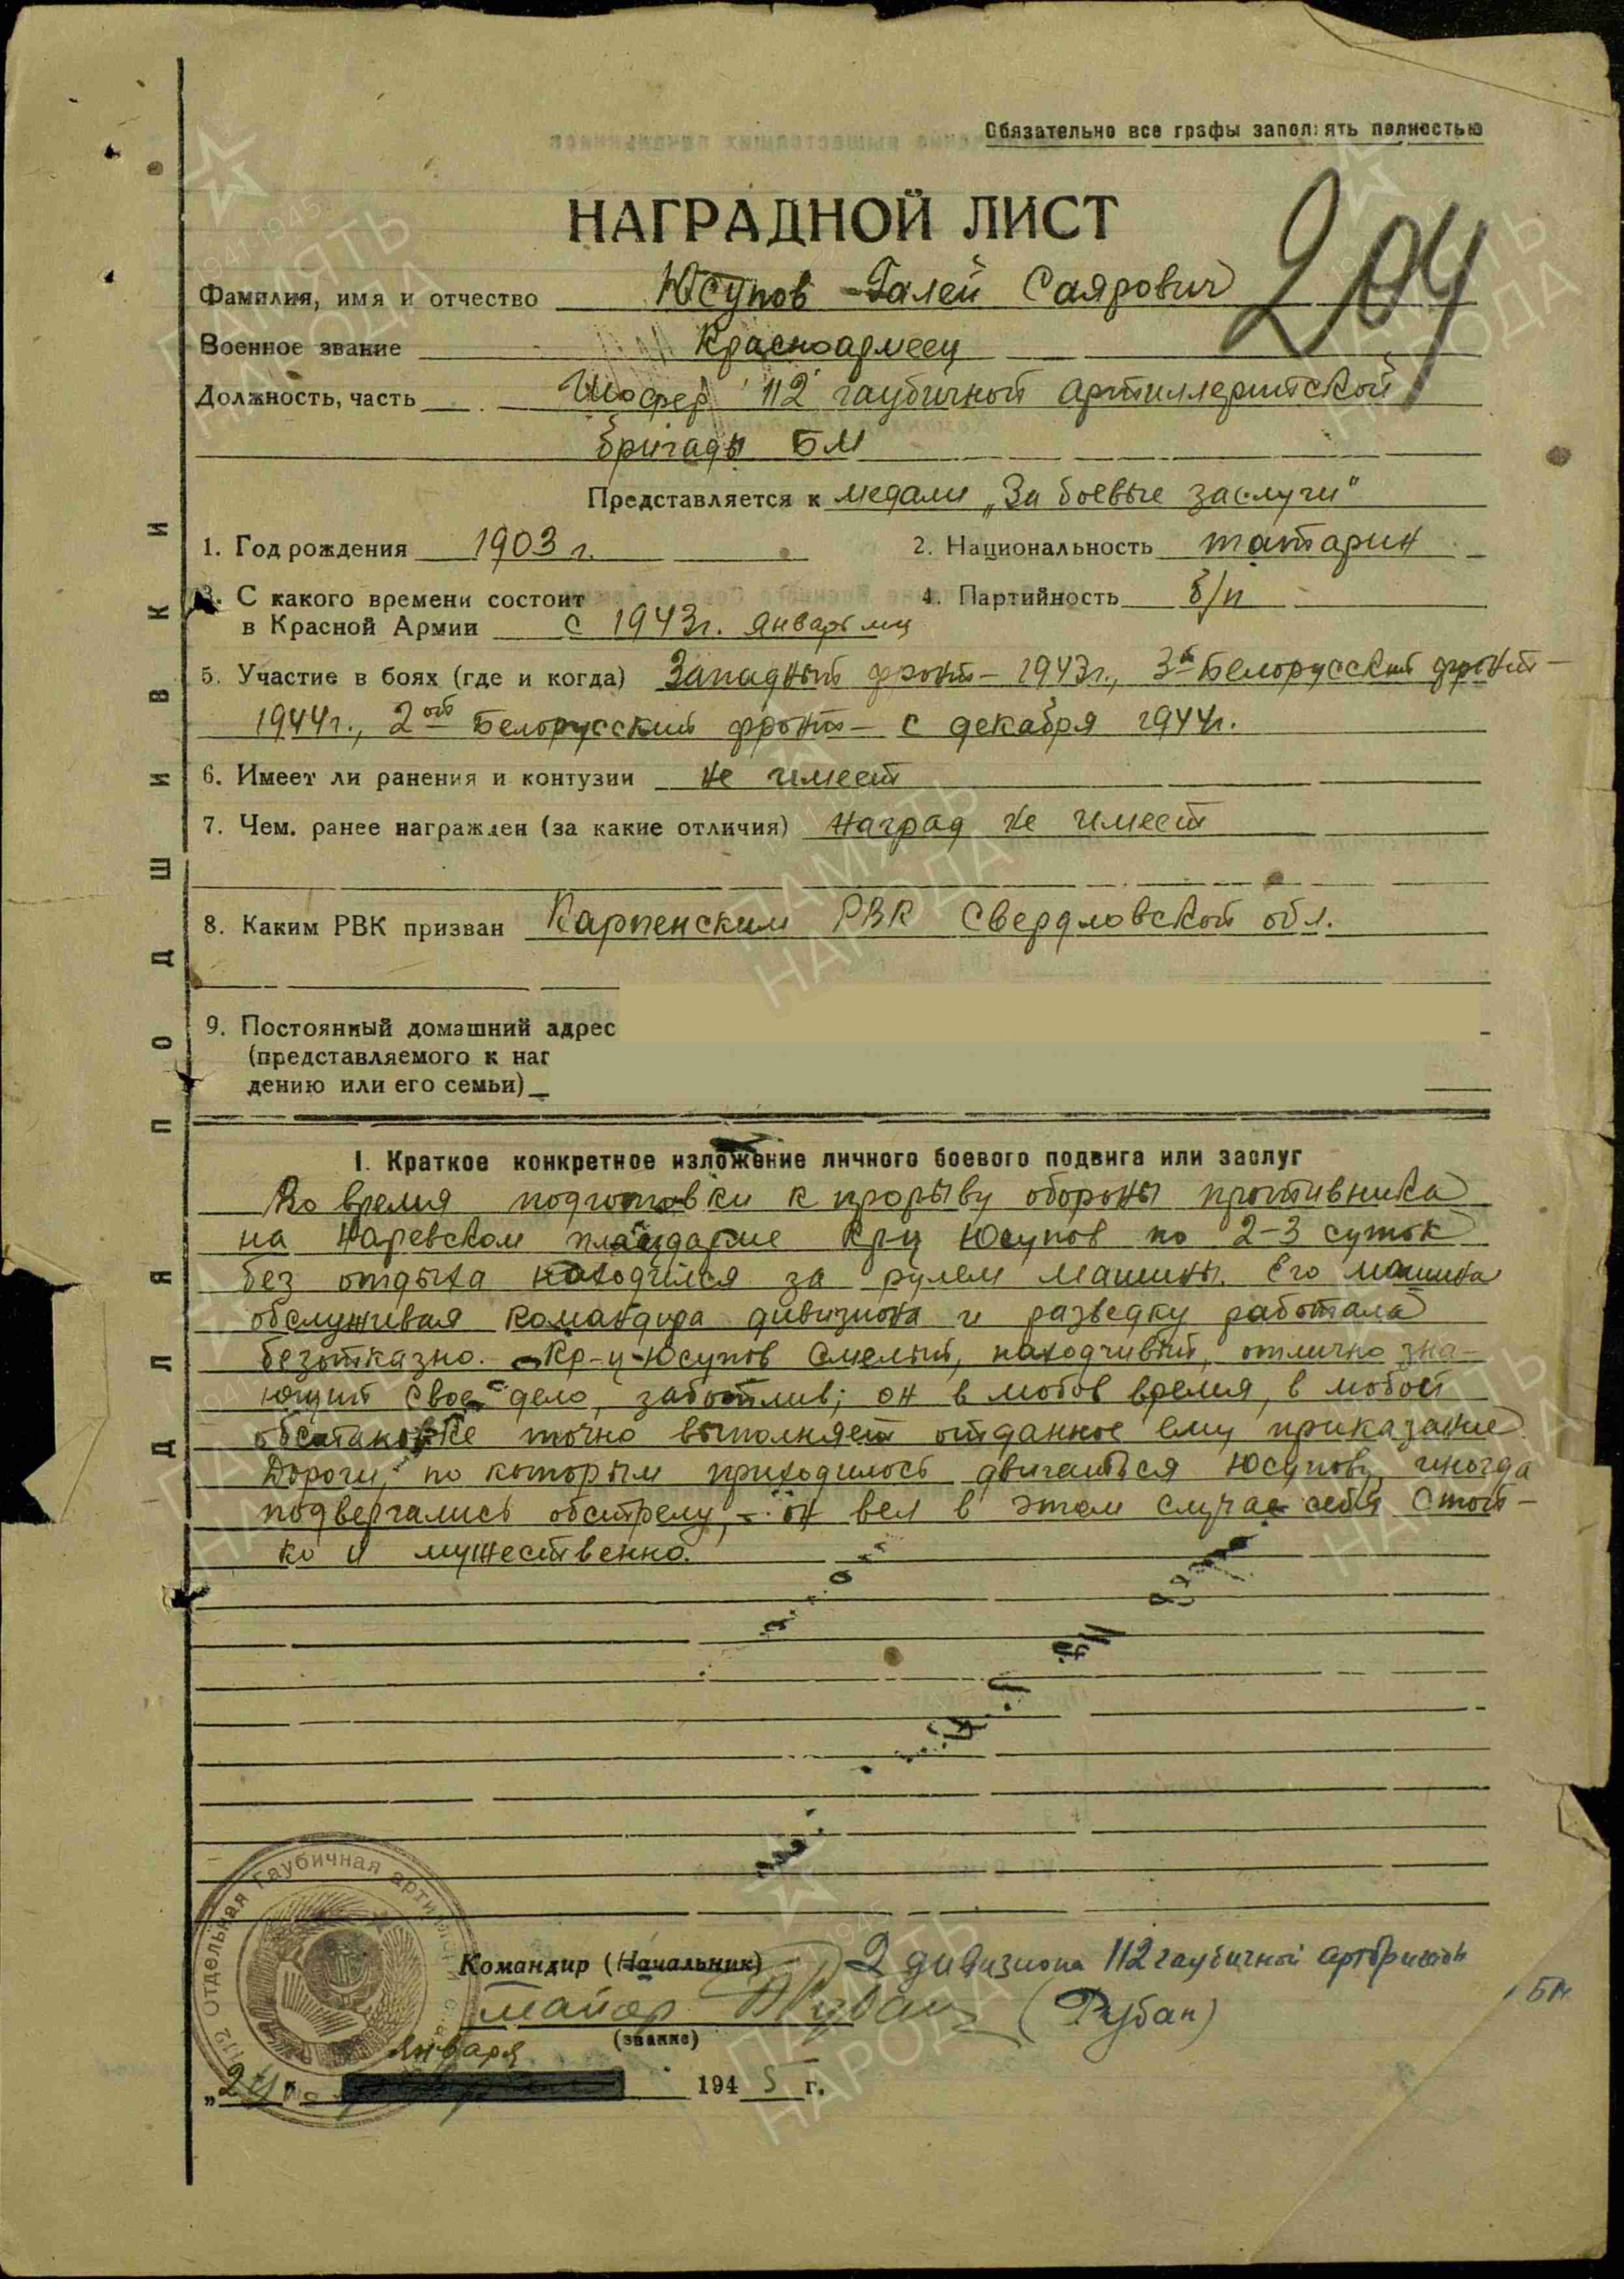 Обязательно все графы заполнять полностью
НАГРАДНОЙ ЛИСТ
204
Фамилия, имя и отчество Юсупов Галей Саярович
Военное звание Красноармеец
Должность, часть Шофер 112 гаубичной артиллерийской
бригады БМ
Представляется к медали „За боевые заслуги"
1. Год рождения 1903 г.
2. Национальность татарин
3. С какого времени состоит
в Красной Армии с 1943г. январь м-ц
4. Партийность б/п
5. Участие в боях (где и когда) Западный фронт – 1943г., 3й Белорусский фронт –
1944г., 2ой Белорусский фронт – с декабря 1944г.
6. Имеет ли ранения и контузии не имеет
7. Чем. ранее награжден (за какие отличия) наград не имеет
8. Каким РВК призван Карпенским РВК Свердловской обл.
9. Постоянный домашний адрес
(представляемого к наг
дению или его семьи)
ДЛЯ ПОДШИВКИ
I. Краткое конкретное изложение личного боевого подвига или заслуг
Во время подготовки к прорыву обороны противника
на Наревском плацдарме кр-ц Юсупов по 2-3 суток
без отдыха находился за рулем машины. Его машина
обслуживая командира дивизиона и разведку работала
безотказно. Кр-ц Юсупов смелый, находчивый, отлично зна-
ющий свое дело, заботлив; он в любов время, в любой
обстановке точно выполняет отданное ему приказание.
Дороги, по которым приходилось двигаться Юсупову, иногда
подвергались обстрелу, – он вел в этом случае себя стой-
ко и мужественно.
112 Отдельная Гаубичная
Командир (Начальник) 2 дивизиона 112 гаубичной артбригады
БМ
майор Рубан (Рубан)
(звание)
января
„24" 1945 г.
ПАМЯТЬ
НАРОДА
1941-1945